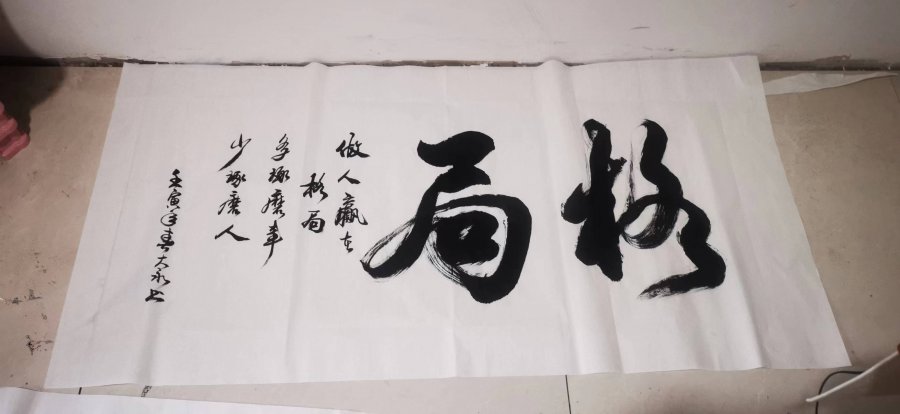 格局
做人赢在
格局
多琢磨事
少琢磨人
壬寅年春大永书